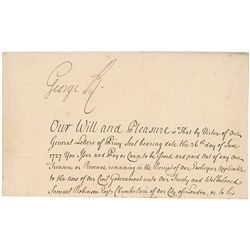 George R.
Our Will and Pleasure is That by Virtue of our
General Letters of Privy Seal bearing date the 26th day of June
1727 You Issue and Pay or Cause to be Issued and paid out of any our
Treasure or Revenue remaining in the Receipt of our Exchequer Applicable
to the uses of our Civil Government unto our Trusty and Welbeloved
Samuel Robinson Esqr. Chamberlain of our City of London, or to his